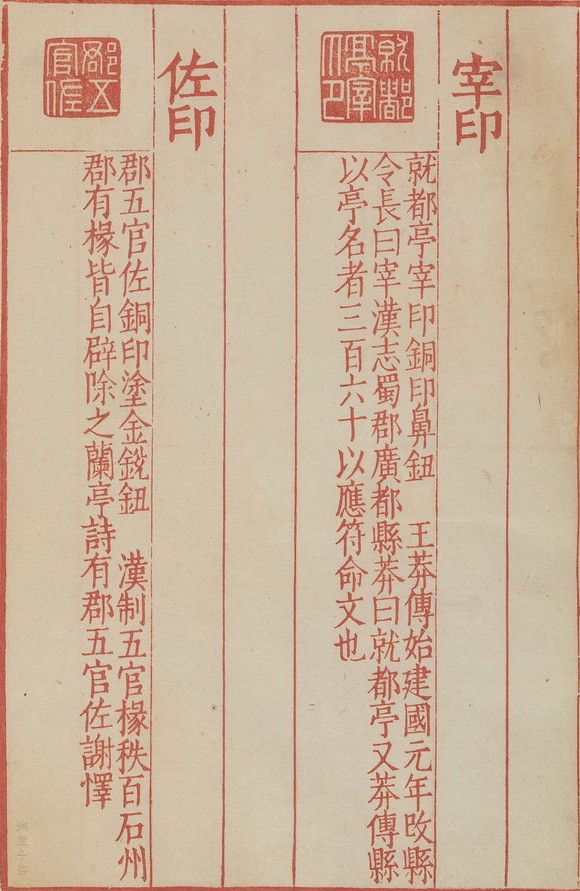 宰印
就都亭宰印
就都亭宰印銅印鼻鈕　王莽傳始建國元年改縣
令長曰宰漢志蜀郡廣都縣莽曰就都亭又莽傳縣
以亭名者三百六十以應符命文也
佐印
郡五官佐
郡五官佐銅印塗金銳鈕　漢制五官椽秩百石州
郡有椽皆自辟除之蘭亭詩有郡五官佐謝懌